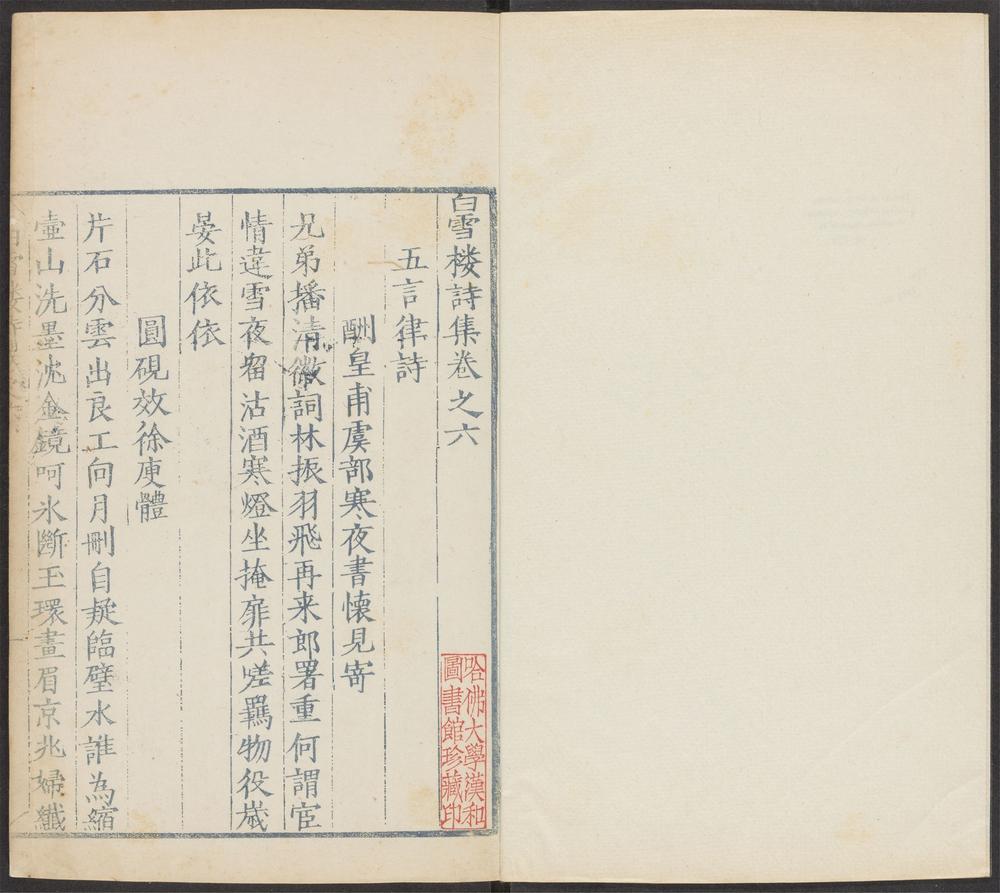 白雪楼詩集卷之六
五言律詩
酬皇甫虞部寒夜書懐見寄
兄弟播清徽詞林振羽飛再来郎署重何謂宦
情違雪夜畱沽酒寒燈坐掩扉共嗟羈物役嵗
晏此依依
圓硯效徐庾體
片石分雲出良工向月刪自疑臨璧水誰為縮
壷山洗墨沈金鏡呵氷斷玉環畫眉京兆婦纖
哈佛大學漢和
圖書館珍藏印